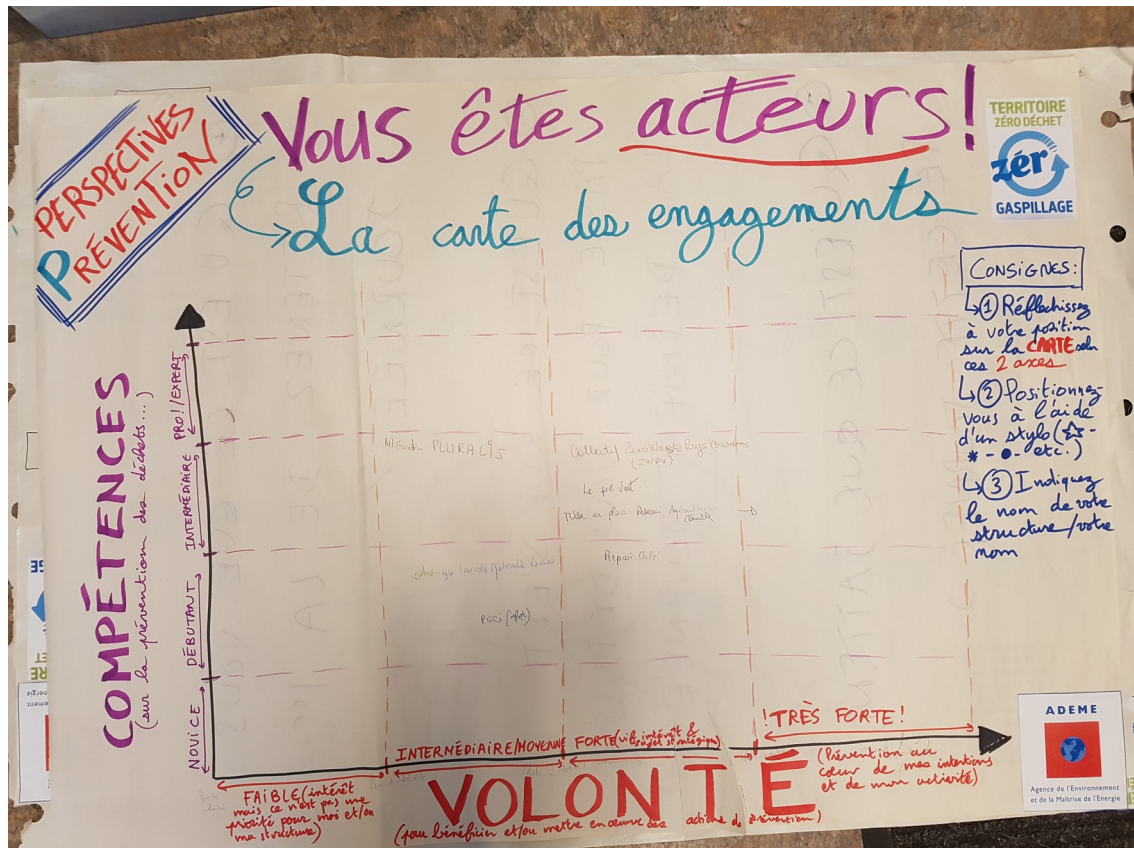 PERSPECTIVES
PRÉVENTION
Vous êtes acteurs!
La carte des engagements
TERRITOIRE
ZÉRO DÉCHET
zéro
GASPILLAGE
CONSIGNES:
① Réflechissez
à votre position
sur la CARTE selon
ces 2 axes
② Positionnez-
vous à l'aide
d'un stylo (☆-
* - ● - etc.)
③ Indiquez
le nom de votre
structure/votre
nom
COMPÉTENCES
(sur la prévention des déchets...)
PRO!/EXPERT
INTERMÉDIAIRE
DÉBUTANT
NOVICE
PLURALIS
Collectif Zero Waste Pays
Le
Mise en place Réseau
Repair Café
PGCI
FAIBLE (intérêt
mais ce n'est pas une
priorité pour moi et/ou
ma structure)
INTERMÉDIAIRE/MOYENNE
FORTE (vif intérêt &
sujet stratégique)
!TRÈS FORTE!
(Prévention au
cœur de mes intentions
et de mon activité)
VOLONTÉ
(pour bénéficier et/ou mettre en œuvre des actions de prévention)
ADEME
Agence de l'Environnement
et de la Maîtrise de l'Energie